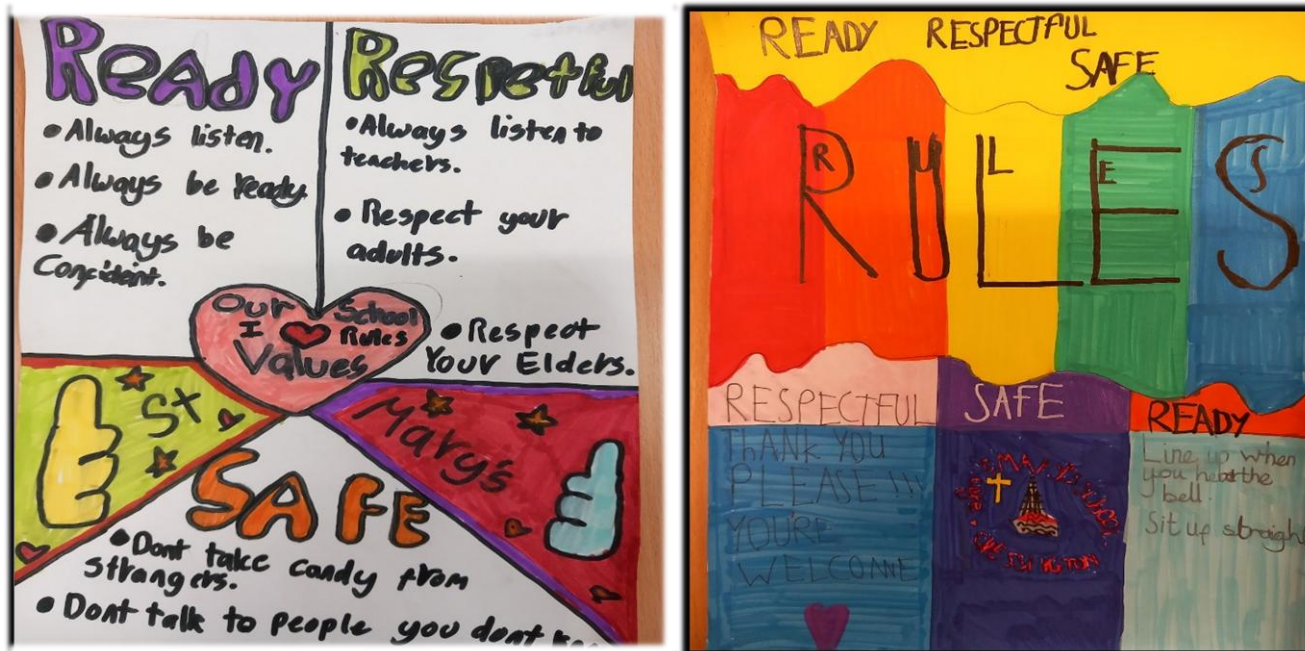 Ready
• Always listen.
• Always be ready.
• Always be
Confident.
Respectful
• Always listen to
teachers.
• Respect your
adults.
• Respect
Your Elders.
Our School
I Rules
Values
St
Marys
SAFE
• Dont take candy from
strangers.
• Dont talk to people you dont
READY RESPECTFUL
SAFE
RULES
R U L E S
RESPECTFUL
THANK YOU
PLEASE !!!
YOU'RE
WELCOME
SAFE
ST MARY'S SCHOOL
ISLINGTON
READY
Line up when
you hear the
bell.
Sit up straigh